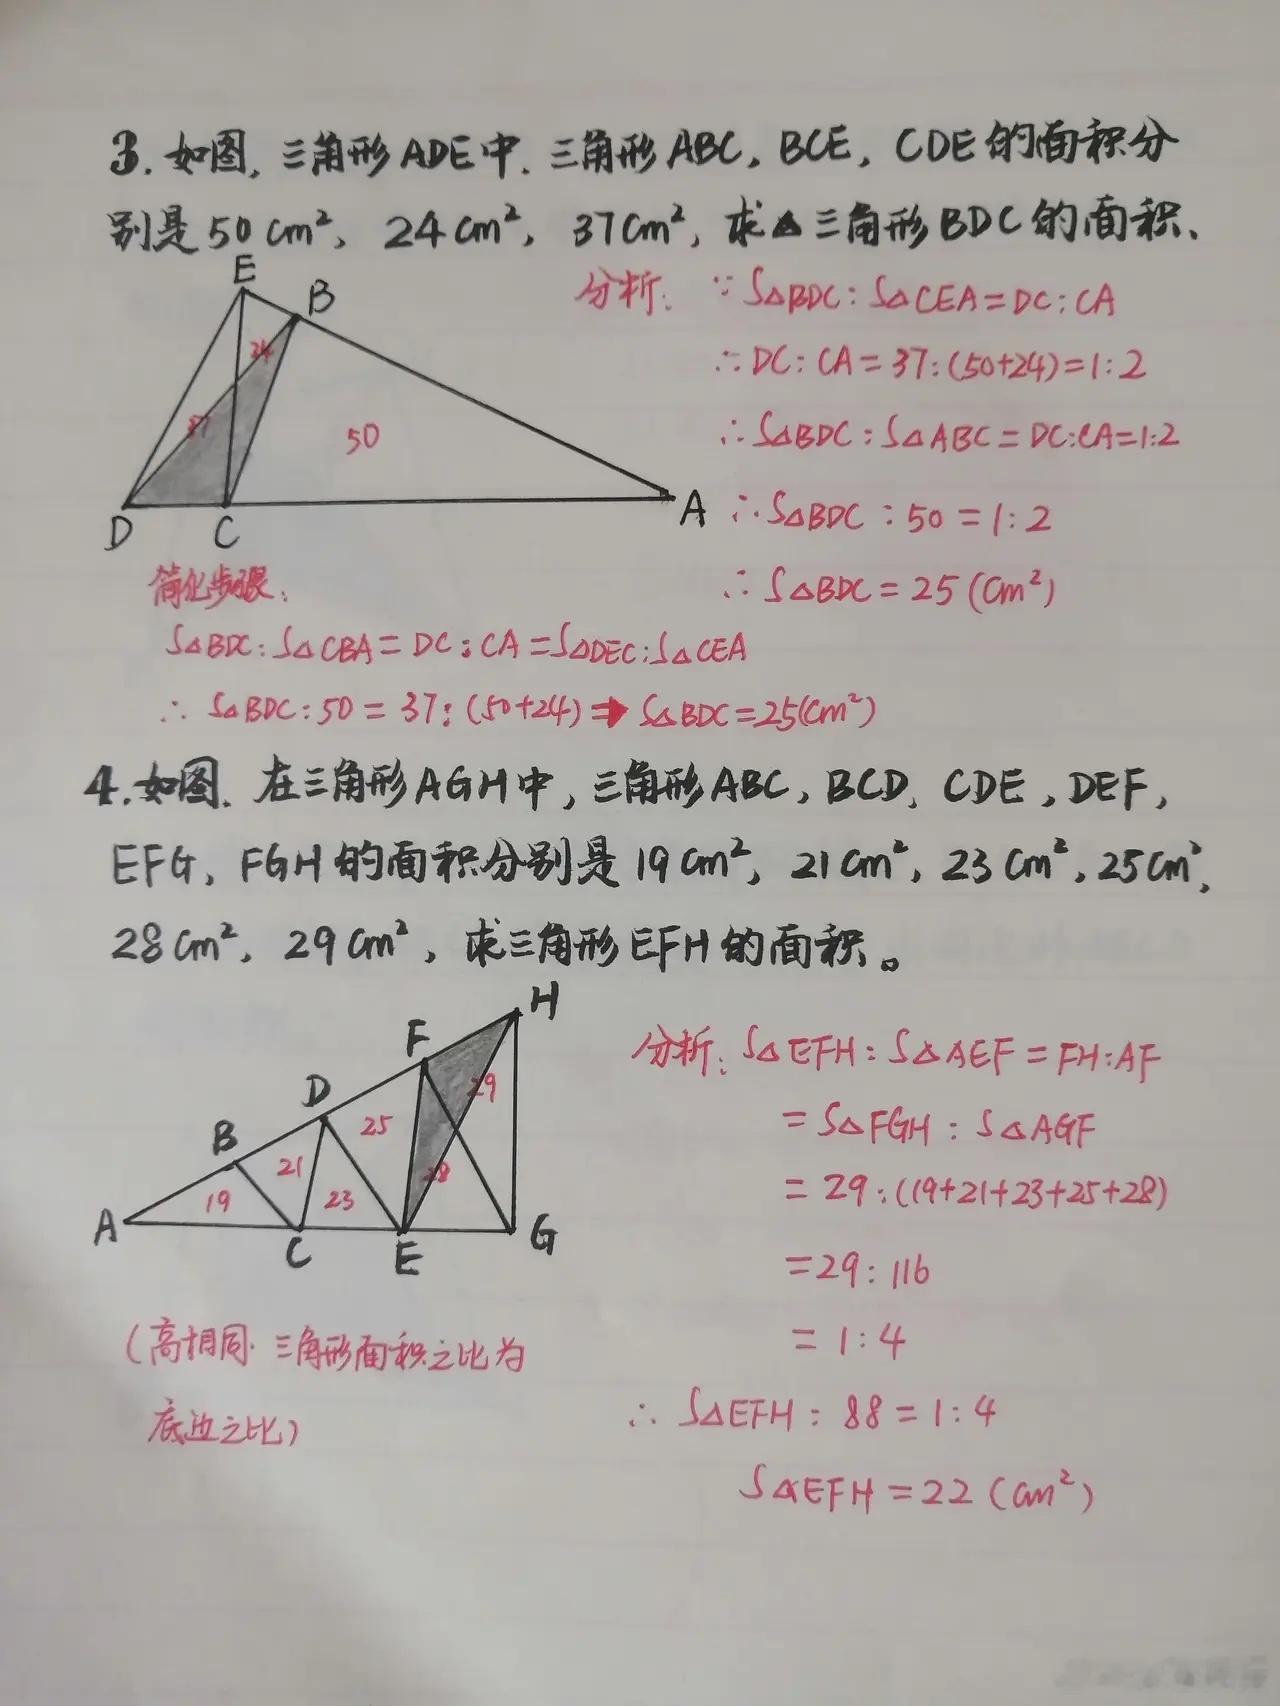 3. 如图, 三角形ADE中. 三角形ABC, BCE, CDE的面积分
别是50cm², 24cm², 37cm², 求△三角形BDC的面积.
E
B
24
37
50
D
C
A
分析: ∵ S△BDC:S△CEA=DC:CA
∴ DC:CA=37:(50+24)=1:2
∴ S△BDC:S△ABC=DC:CA=1:2
∴ S△BDC:50=1:2
∴ S△BDC=25(cm²)
简化步骤:
S△BDC:S△CBA=DC:CA=S△DEC:S△CEA
∴ S△BDC:50=37:(50+24)⇒S△BDC=25(cm²)
4.如图. 在三角形AGH中, 三角形ABC, BCD, CDE, DEF,
EFG, FGH的面积分别是19cm², 21cm², 23cm², 25cm²,
28cm², 29cm², 求三角形EFH的面积。
H
F
D
B
29
25
21
28
19
23
A
C
E
G
(高相同. 三角形面积之比为
底边之比)
分析: S△EFH:S△AEF=FH:AF
=S△FGH:S△AGF
=29:(19+21+23+25+28)
=29:116
=1:4
∴ S△EFH:88=1:4
S△EFH=22(cm²)